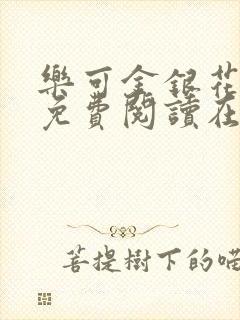 樂可金銀花
免費閱讀在
菩提樹下的喵